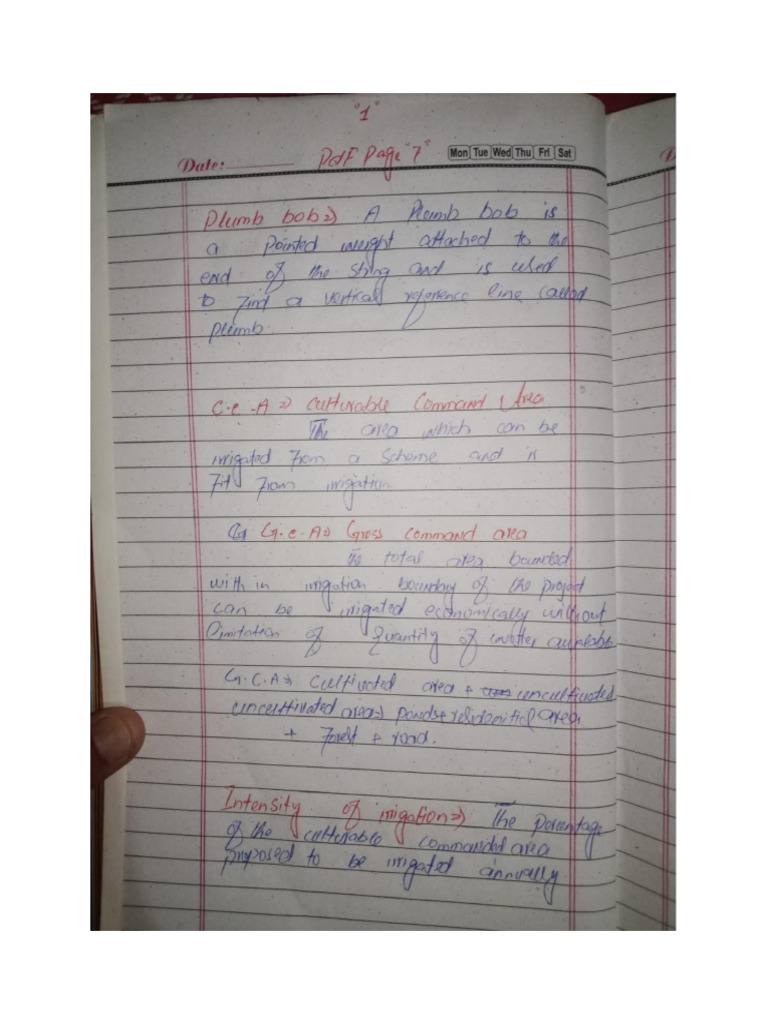 "1"
Date:
Pdf Page "7"
Mon Tue Wed Thu Fri Sat
Plumb bob⇒ A Plumb bob is
a pointed weight attached to the
end of the string and is used
to find a vertical reference line called
plumb.
C.C.A⇒ Culturable Command Area
The area which can be
irrigated from a scheme and is
fit from irrigation
G.C.A⇒ Gross command area
The total area bounded
with in irrigation boundry of the project
can be irrigated economically without
limitation of quantity of water available
G.C.A⇒ cultivated area + uncultivated
uncultivated area⇒ ponds+residenitial area
+ Forest + road.
Intensity of irrigation⇒ The percentage
of the culturable commanded area
proposed to be irrigated annually